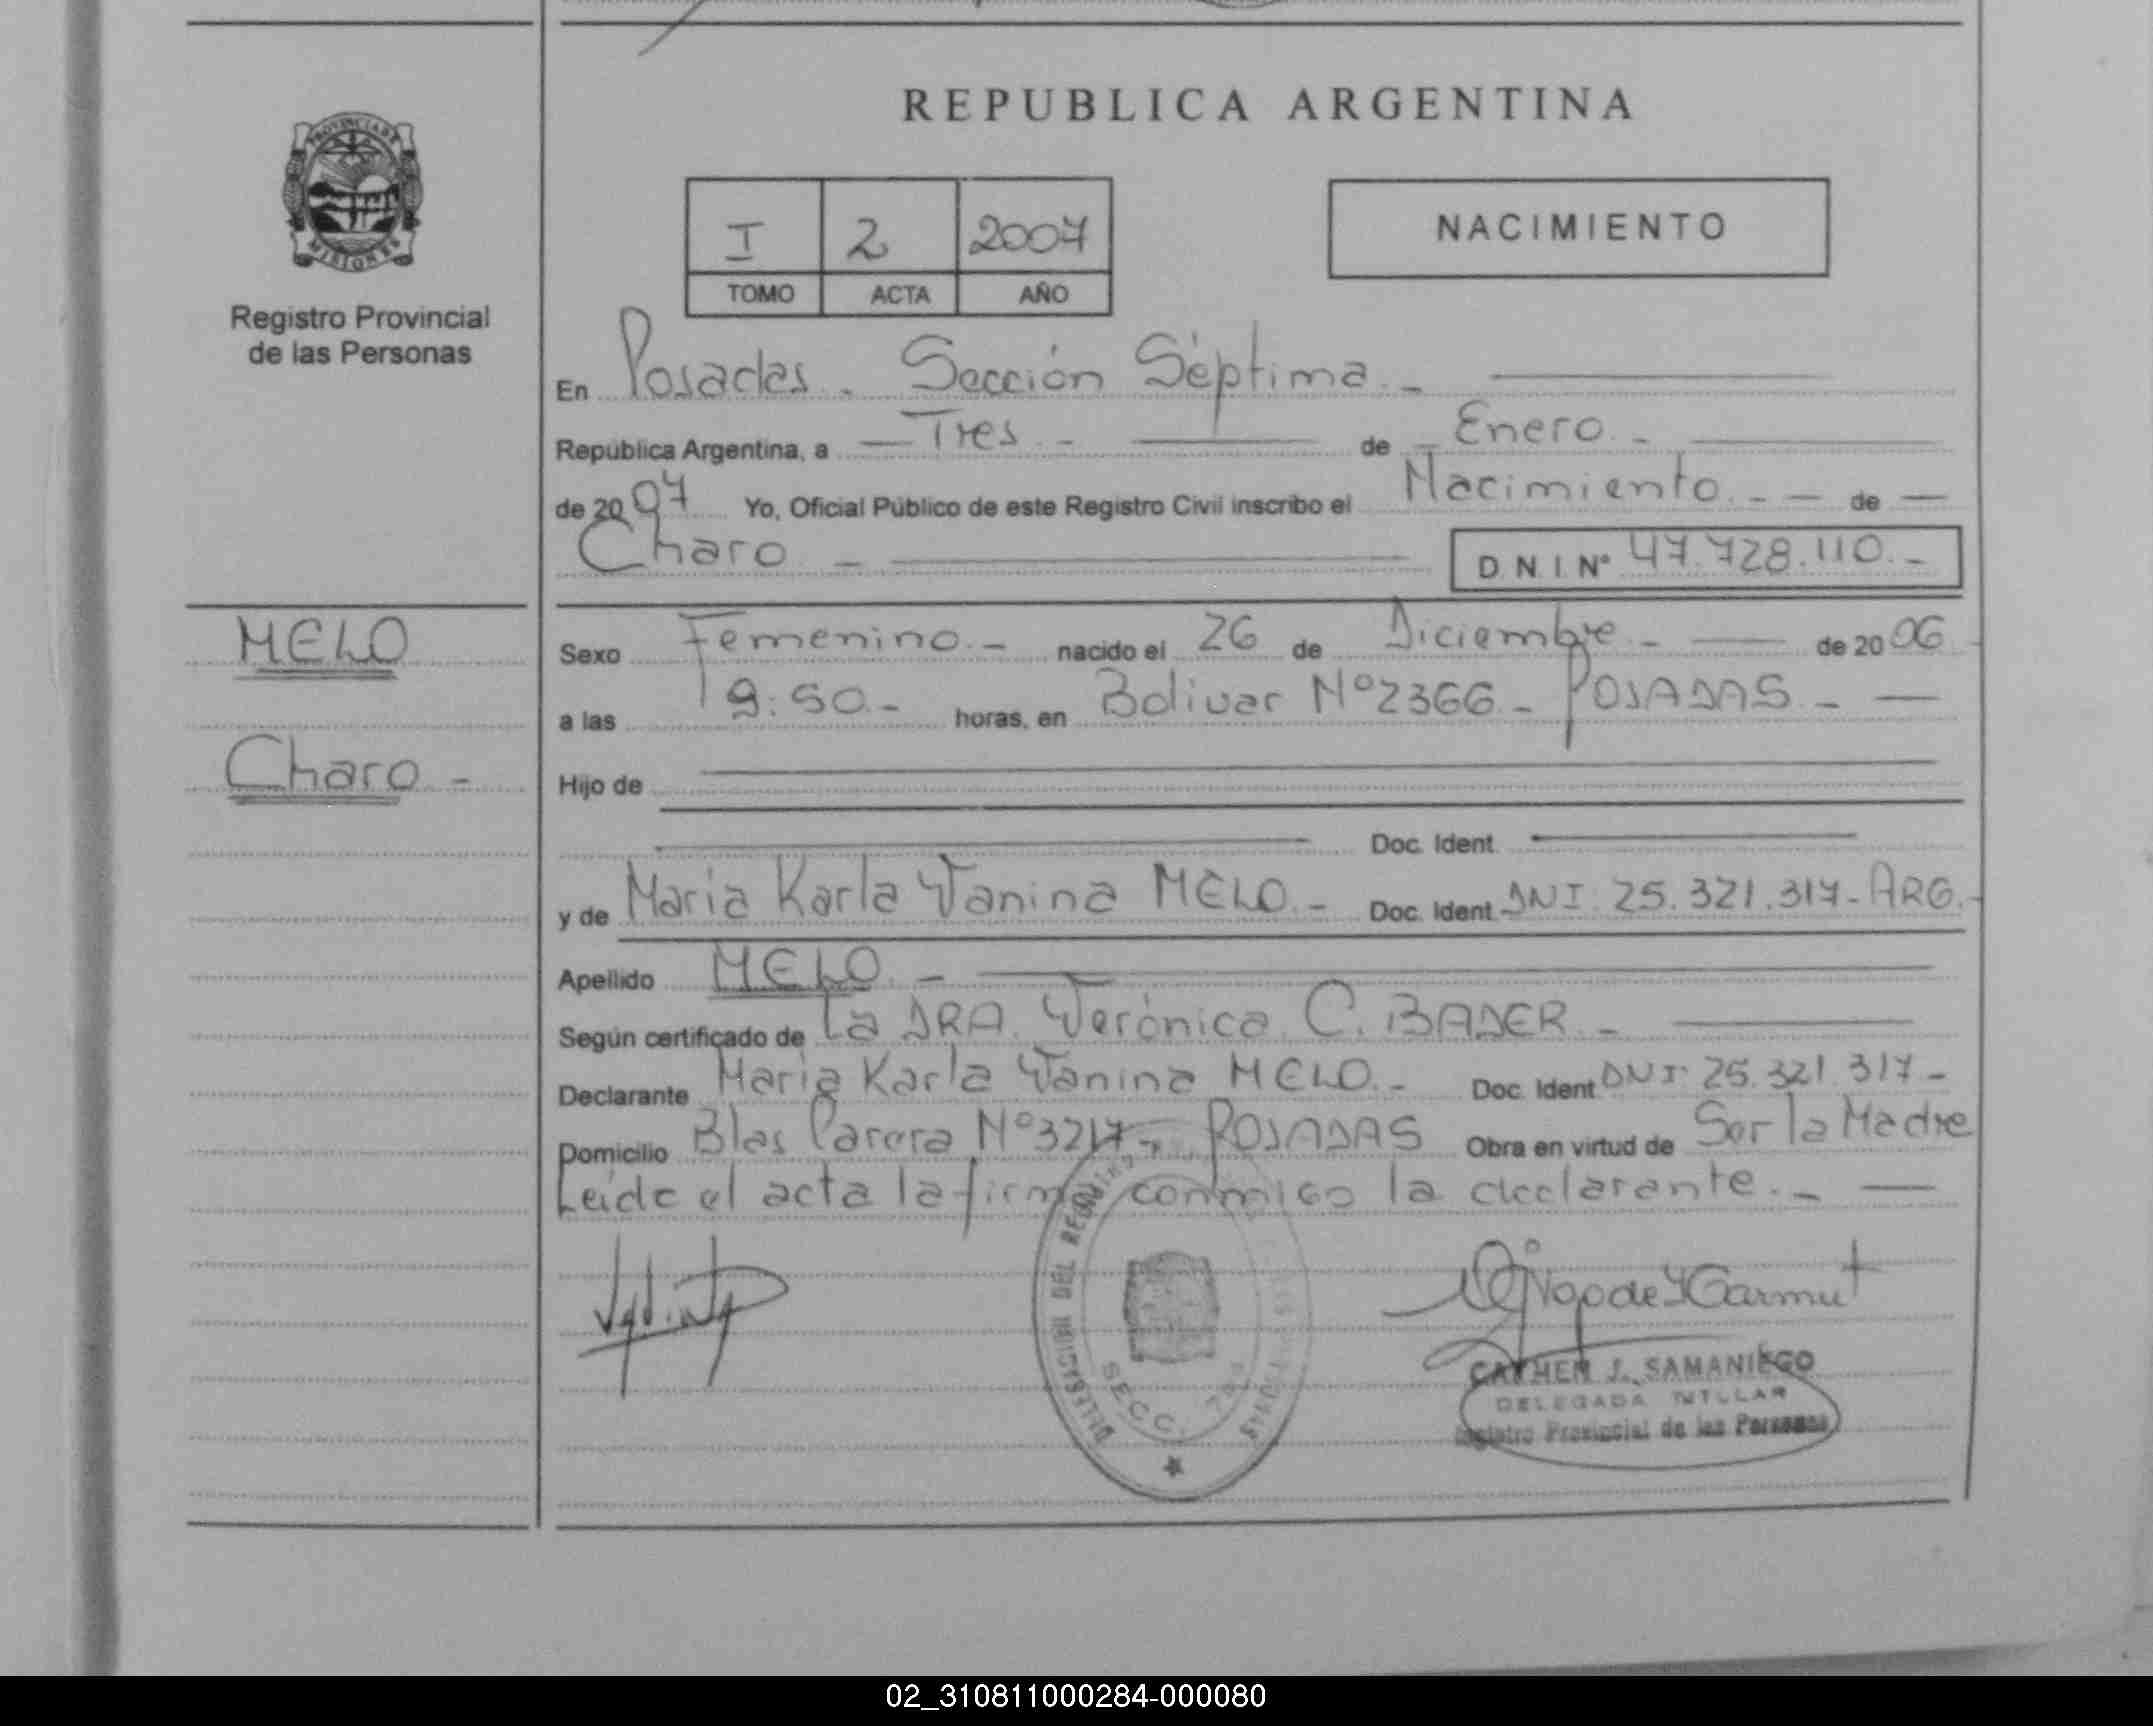 REPUBLICA ARGENTINA
PROVINCIA DE
MISIONES
Registro Provincial
de las Personas
I 2 2007
TOMO ACTA AÑO
NACIMIENTO
En Posadas. Sección Séptima.-
República Argentina, a Tres.- de Enero.-
de 2007 Yo, Oficial Público de este Registro Civil inscribo el Nacimiento.- de
Charo - D.N.I. Nº 47.728.110.-
MELO
Charo -
Sexo Femenino.- nacido el 26 de Diciembre.- de 2006-
a las 19:50.- horas, en Bolivar Nº2366.- POSADAS.-
Hijo de
Doc. Ident.
y de Maria Karla Vanina MELO.- Doc. Ident. DNI. 25.321.317- ARG.-
Apellido MELO.-
Según certificado de la DRA. Verónica C. BADER.-
Declarante Maria Karla Vanina MELO.- Doc. Ident. DNI. 25.321.317-
Domicilio Blas Parera Nº3217- POSADAS Obra en virtud de Ser la Madre
Leida el acta la firma conmigo la declarante.-
DEL
SECC. 7ma
CARMEN J. SAMANIEGO
DELEGADA TITULAR
Registro Provincial de las Personas
02_310811000284-000080